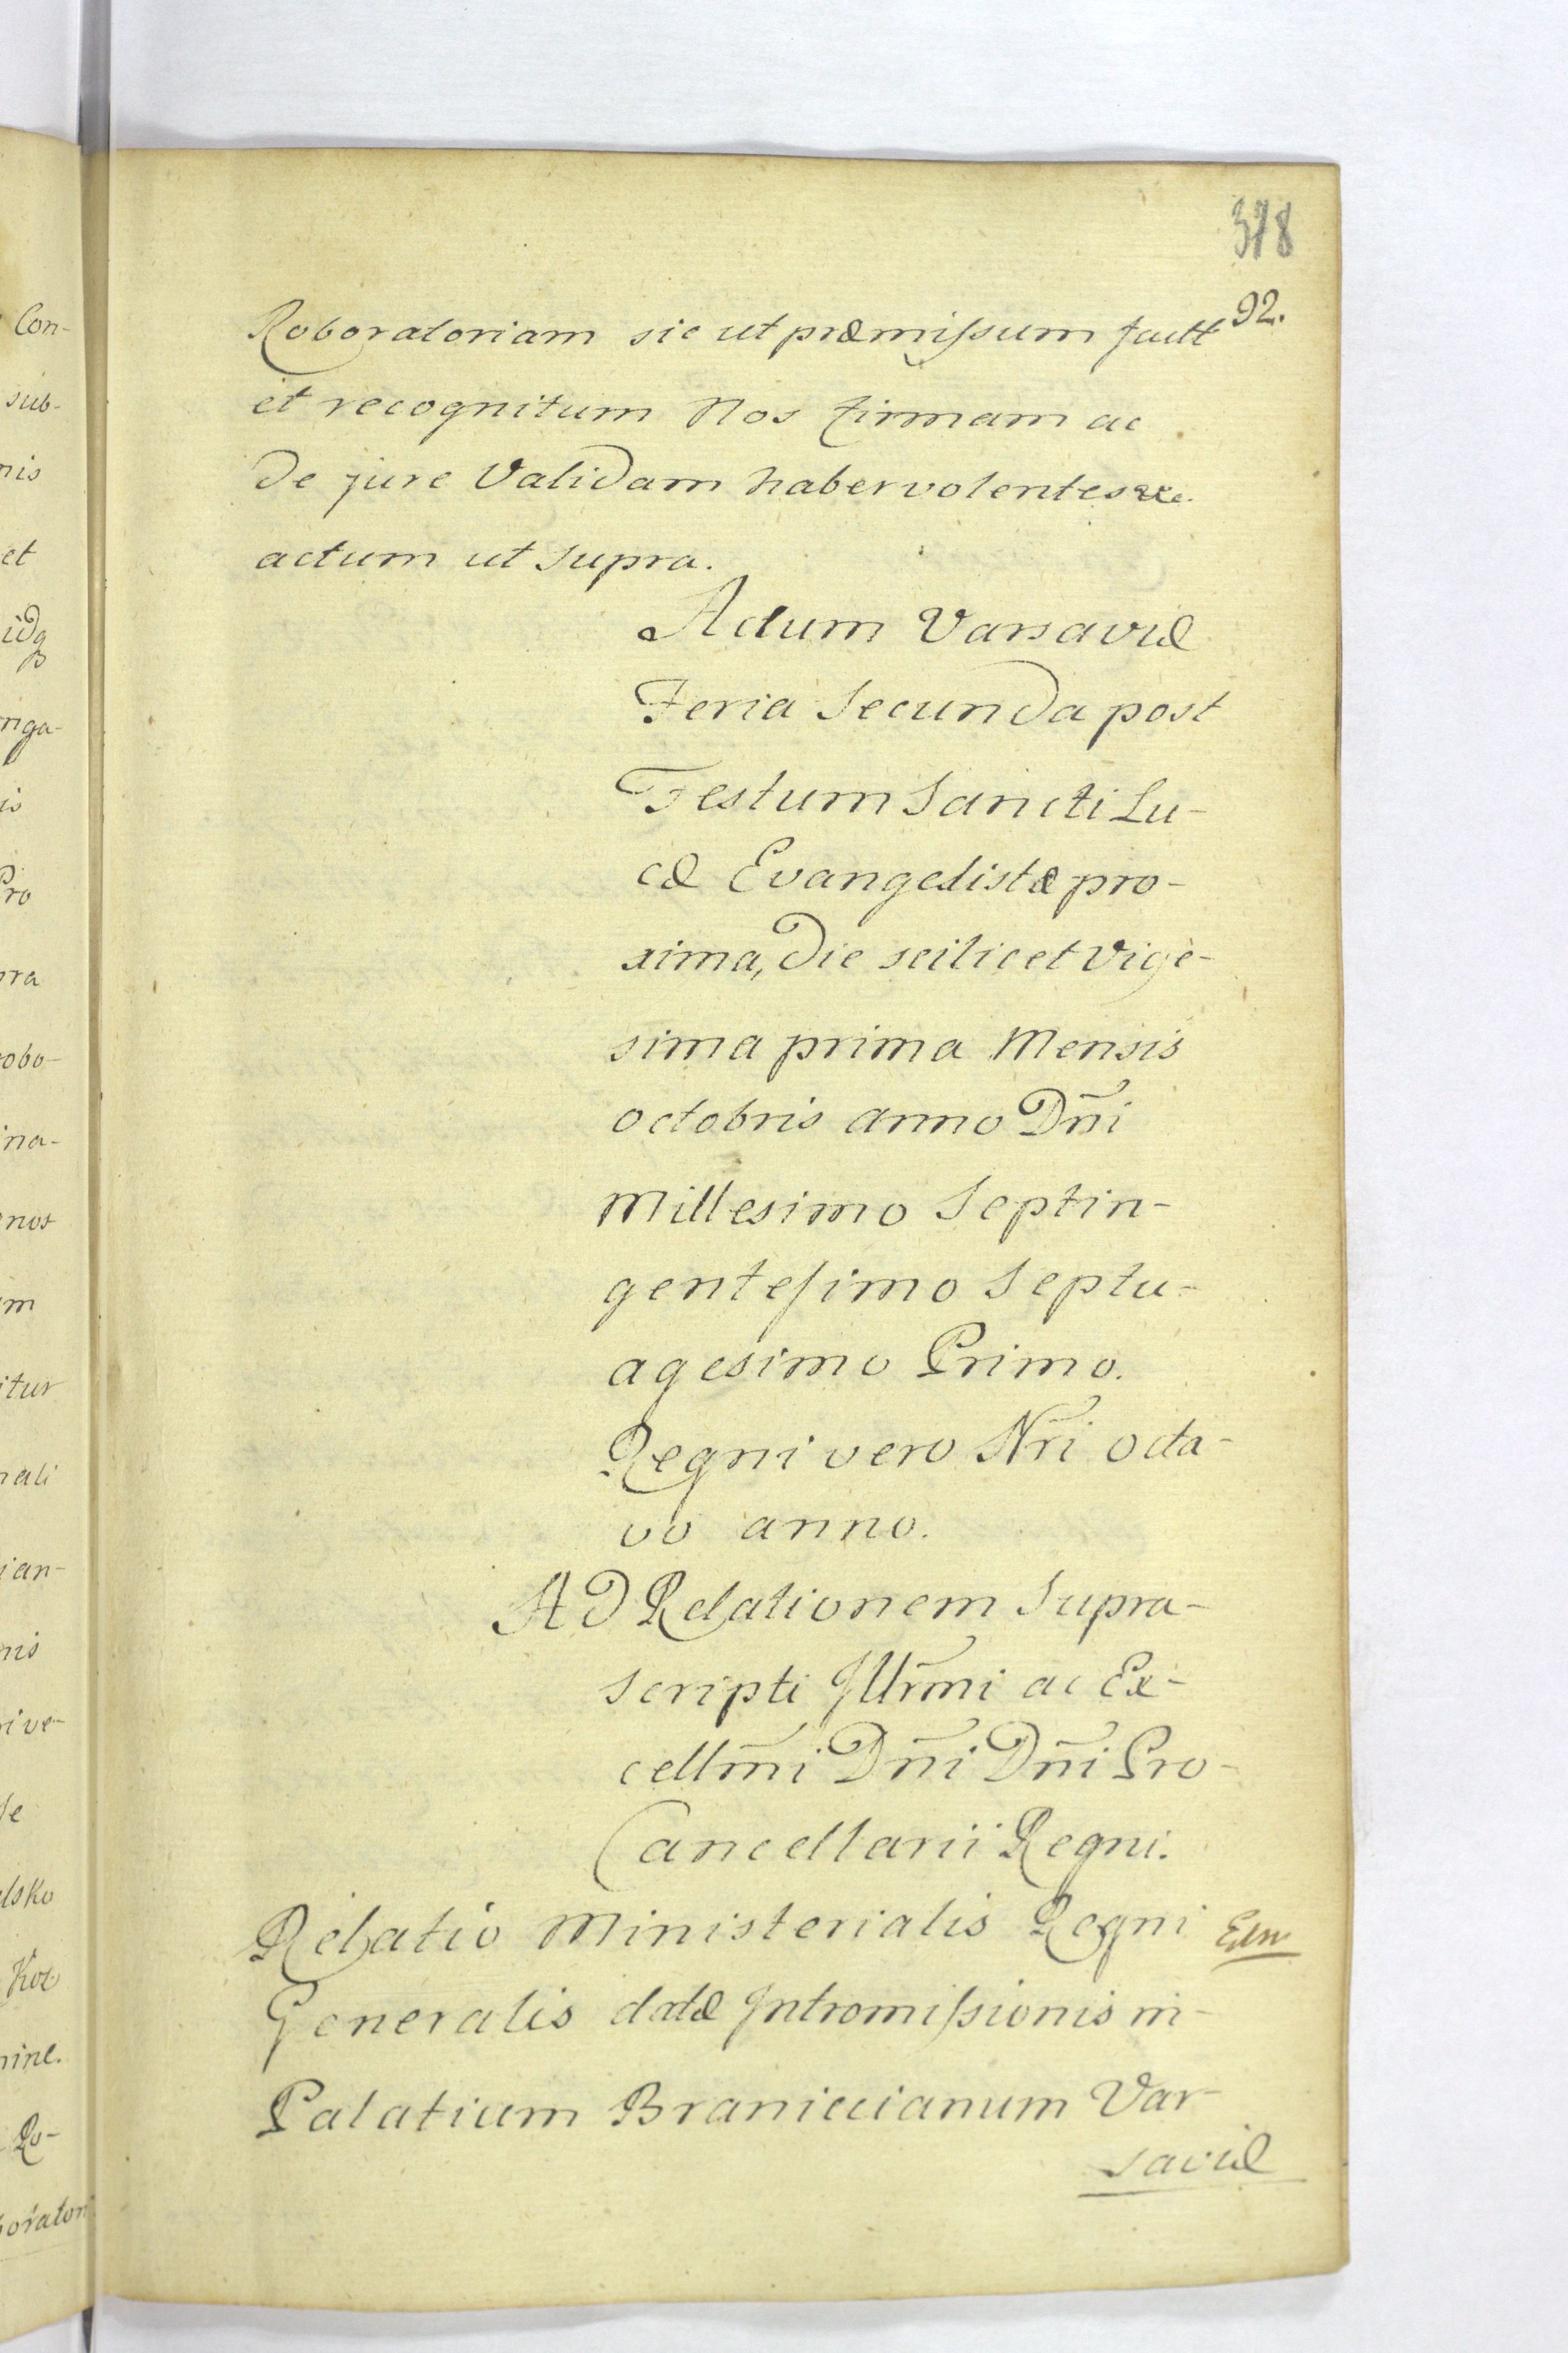 378
92.
Roboratoriam sic ut præmissum factt
et recognitum Nos firmam ac
de jure Validam haber volentes &c.
actum ut Supra.
Actum Varsaviæ
Feria Secunda post
Festum Sancti Lu-
cæ Evangelistæ pro-
xima, Die scilicet Vige-
sima prima Mensis
octobris anno Dn̄i
Millesimo Septin-
gentesimo Septu-
agesimo Primo.
Regni vero Nr̄i octa-
vo anno.
AD Relationem Supra-
scripti Jllr̄mi ac Ex-
cellm̄i Dn̄i Dn̄i Pro-
Cancellarii Regni.
Relatio Ministerialis Regni
Generalis datæ Jntromissionis in-
Palatium Braniccianum Var-
saviæ
Con-
sub-
nis
et
riga-
is
Pro
pra
robo-
ina-
nos
im
itur
nali
ian-
nis
rive-
se
elsko
nine.
Ro-
boratori